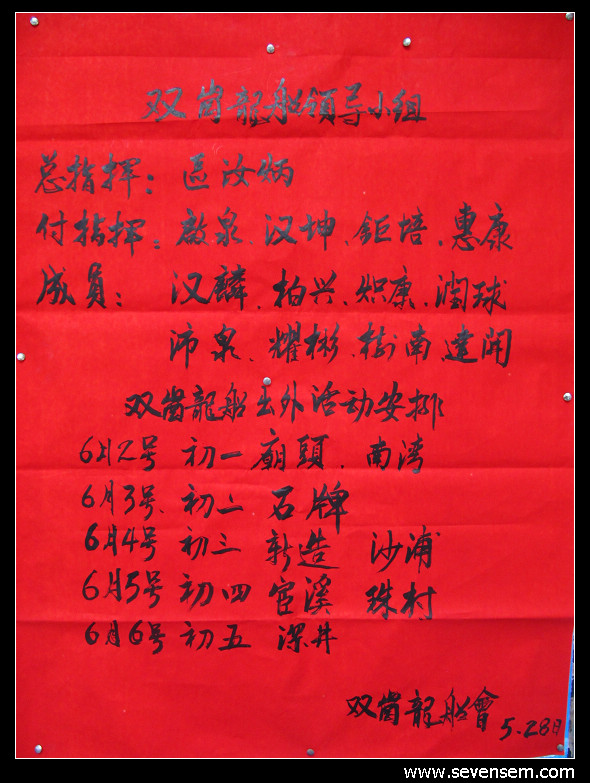 双崗龍船領导小组
总指挥：區汝炳
付指挥：啟泉、汉坤、鉅培、惠康
成员：汉麟、柏兴、炽康、润球
沛泉、耀彬、树南、建開
双崗龍船出外活动安排
6月2号 初一 廟頭、南湾
6月3号、初二 石牌
6月4号 初三 新造 沙浦
6月5号 初四 官溪 珠村
6月6号 初五 深井
双崗龍船會 5.28日
www.sevensem.com